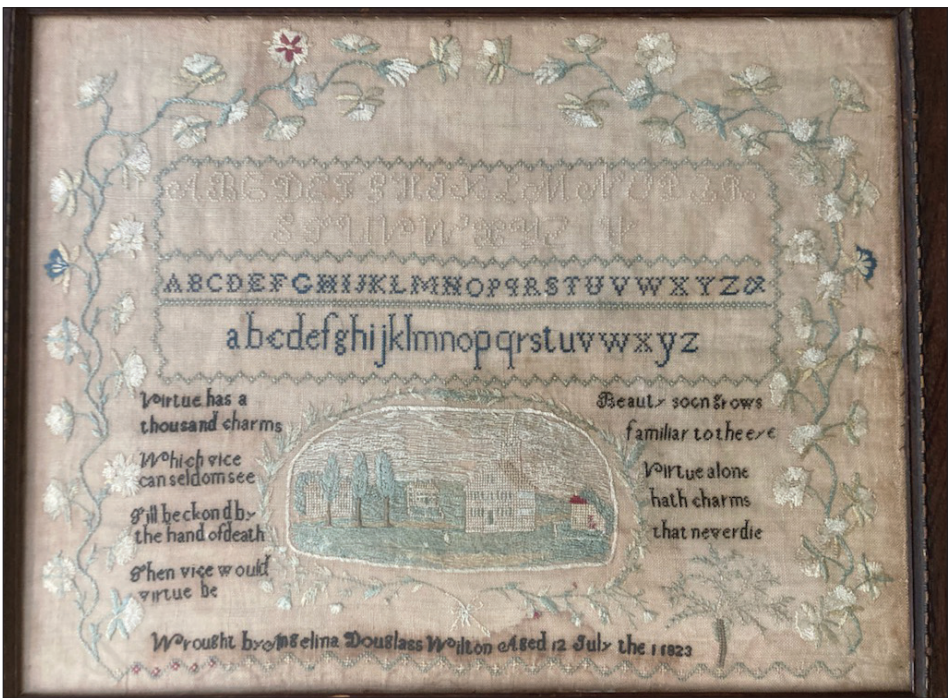 A B C D E F G H I J K L M N O P Q R
S T U V W X Y Z
ABCDEFGHIJKLMNOPQRSTUVWXYZ&
abcdefghijklmnopqrstuvwxyz
Virtue has a
thousand charms
Which vice
can seldom see
Till beckond by
the hand of death
Then vice would
virtue be
Beauty soon grows
familiar to the eye
Virtue alone
hath charms
that never die
Wrought by Angelina Douglass Wilton Aged 12 July the 1 1823